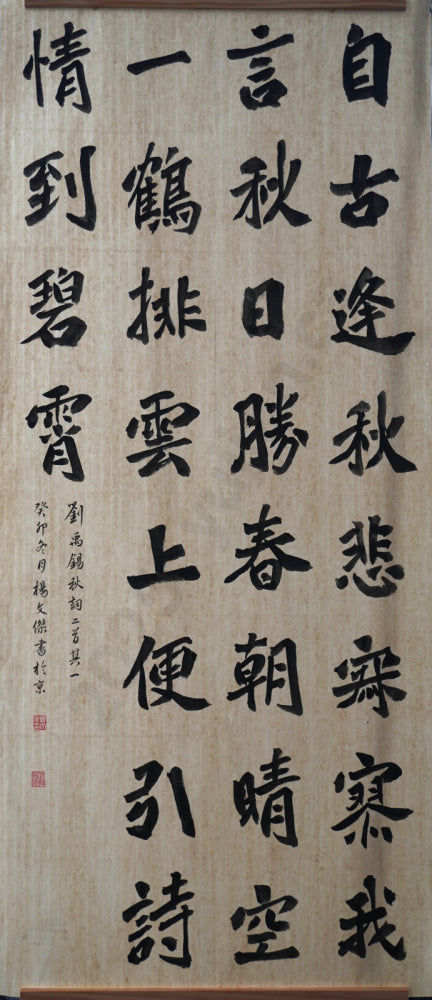 自古逢秋悲寂寥我
言秋日勝春朝晴空
一鶴排雲上便引詩
情到碧霄
劉禹錫秋詞二首其一
癸卯冬月楊文傑書於京